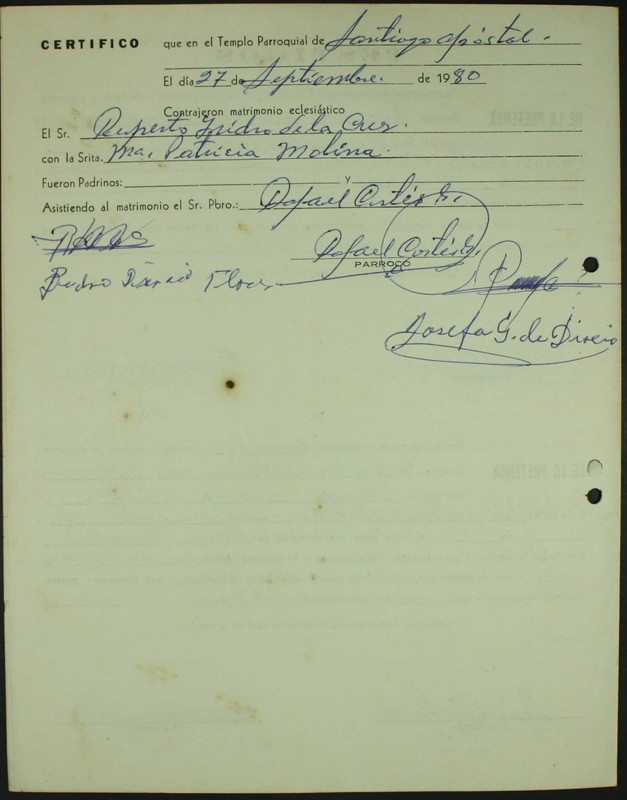 CERTIFICO que en el Templo Parroquial de Santiago Apóstol.
El día 27 de Septiembre. de 1980
Contrajeron matrimonio eclesiástico
El Sr. Ruperto Isidro de la Cruz.
con la Srita. Ma. Patricia Molina.
Fueron Padrinos: y
Asistiendo al matrimonio el Sr. Pbro.: Rafael Cortés G.
Rafael Cortés G.
PARROCO
Pedro Flores
Josefa G. de